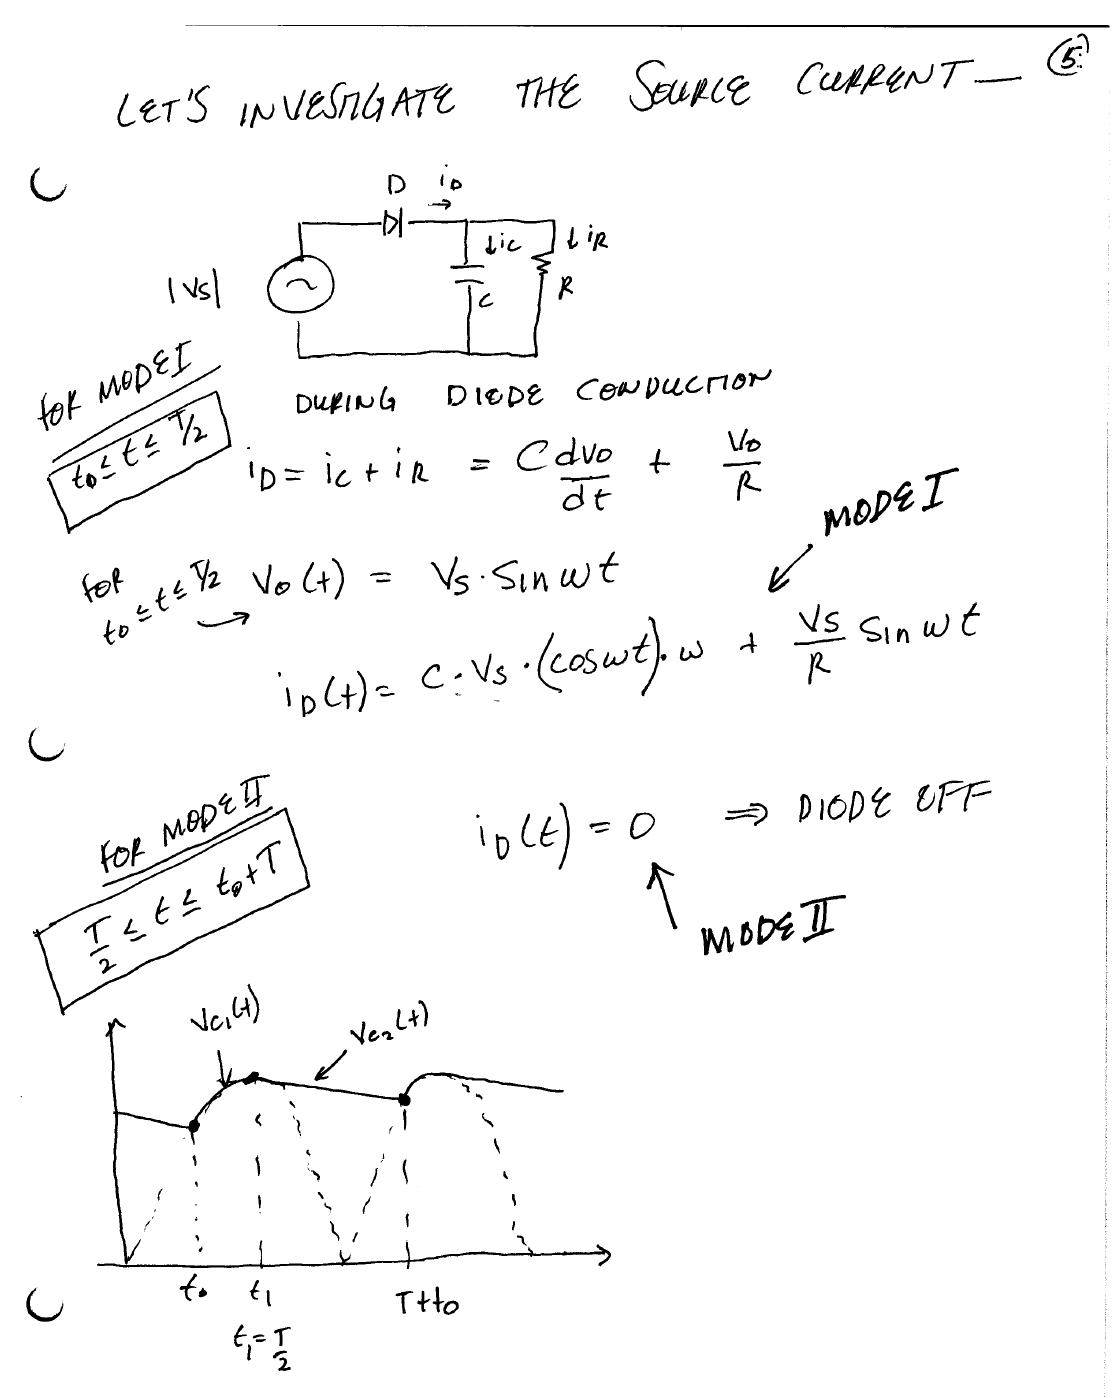 LET'S INVESTIGATE THE SOURCE CURRENT — 5
D iD →
↓ic ↓iR
|Vs| C R
FOR MODE I
t0 ≤ t ≤ T/2
DURING DIODE CONDUCTION
iD = ic + iR = C dvo/dt + Vo/R
MODE I
FOR t0 ≤ t ≤ T/2 → Vo(t) = Vs·Sin wt
iD(t) = C·Vs·(cos wt)·w + VS/R Sin wt
FOR MODE II
T/2 ≤ t ≤ t0+T
iD(t) = 0 ⇒ DIODE OFF
MODE II
Vc1(t) Vc2(t)
t0 t1 T+t0
t1 = T/2